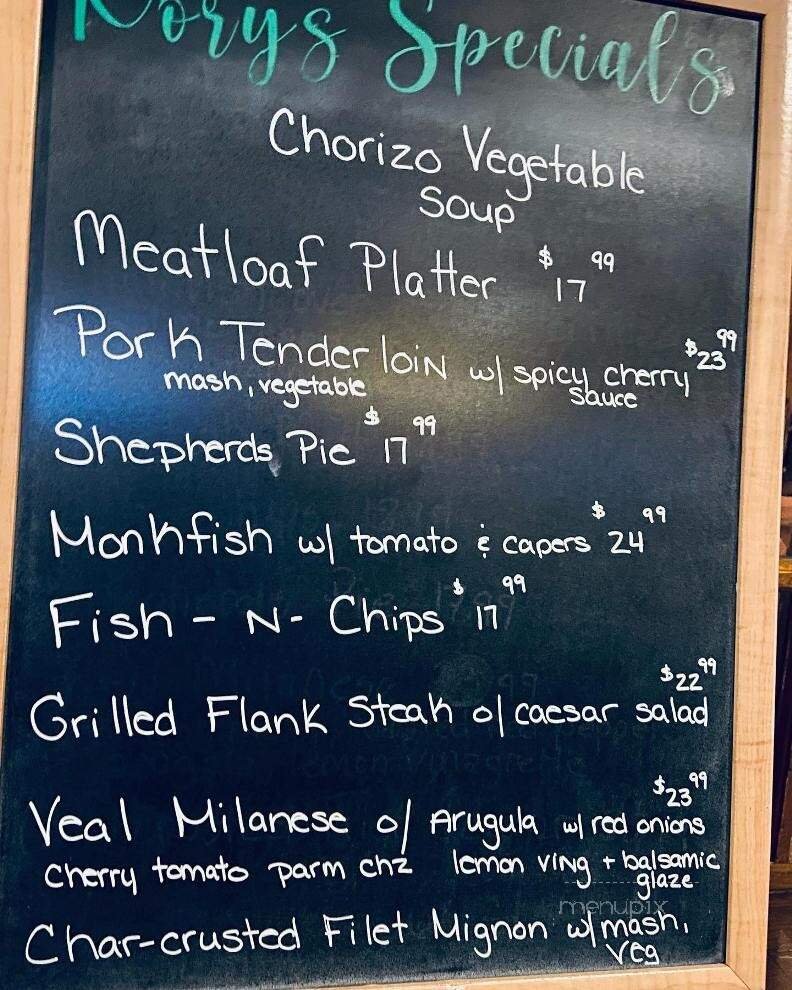 Rorys Specials
Chorizo Vegetable
Soup
Meatloaf Platter $17 99
Pork Tenderloin w/ spicy cherry $23 99
mash, vegetable sauce
Shepherds Pie $17 99
Monkfish w/ tomato & capers $24 99
Fish - N - Chips $17 99
$22 99
Grilled Flank Steak o/ caesar salad
$23 99
Veal Milanese o/ Arugula w/ red onions
cherry tomato parm chz lemon ving + balsamic
glaze
menupix
Char-crusted Filet Mignon w/ mash,
veg